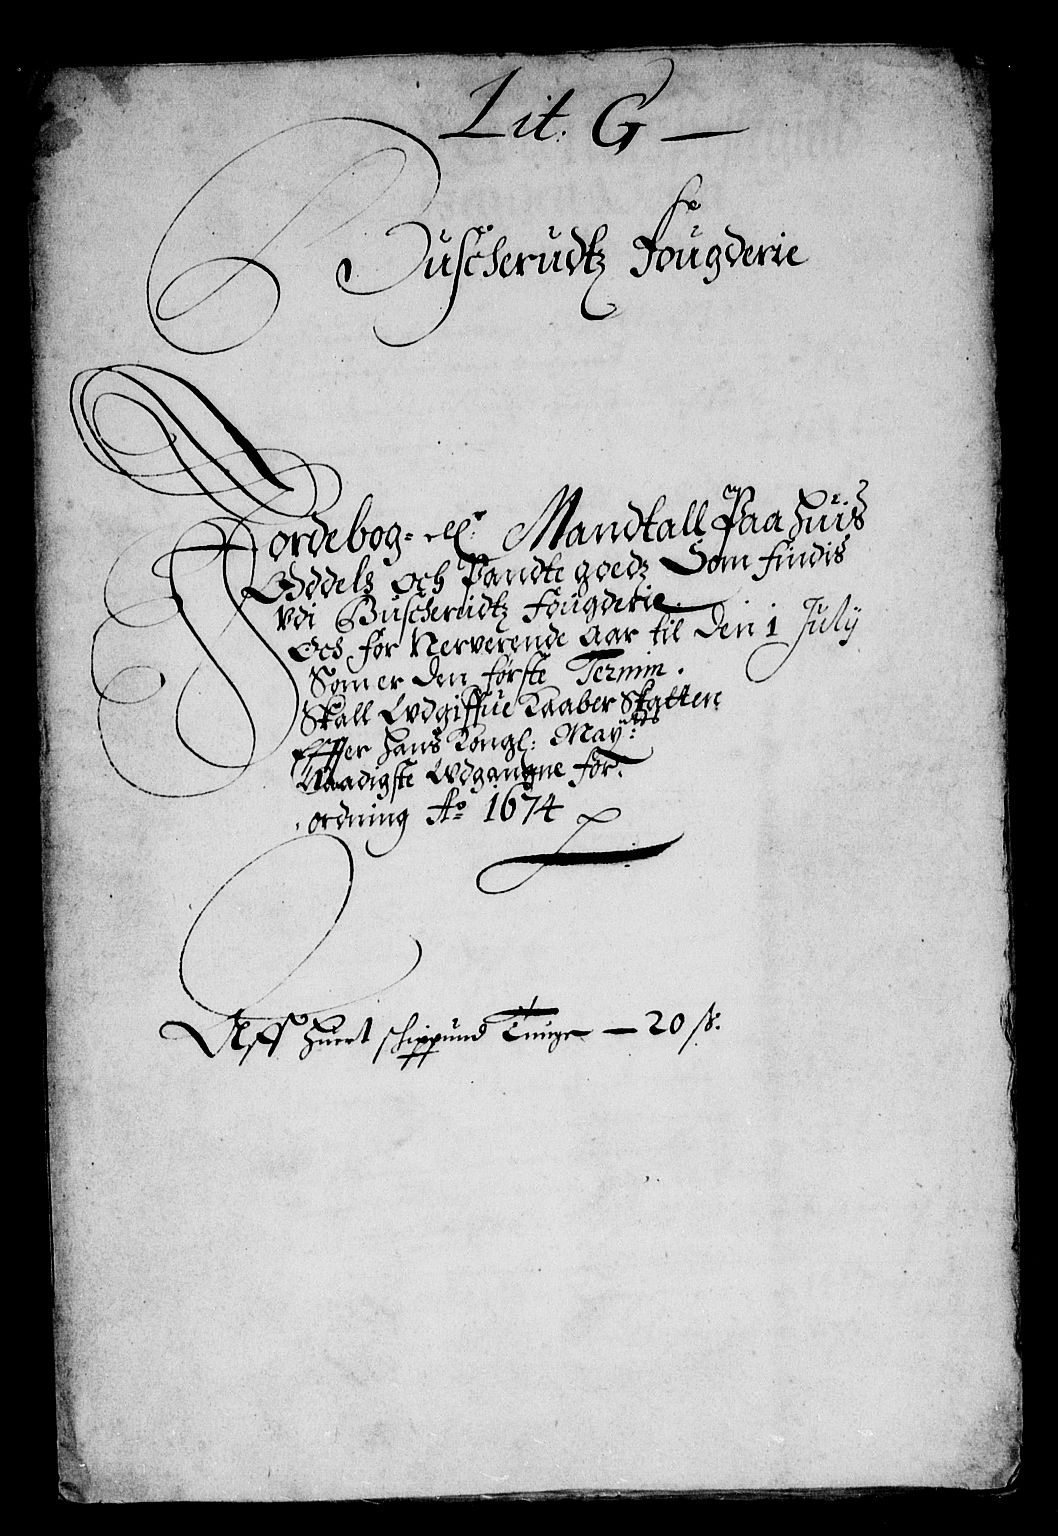 Lit. G
Buscherudtz Fougderie
Jordebog- ell: Mandtall Paa huis
Oddels och Pandte goedz Som findis
Vdi Buscherudtz fougderie
Och for Nerverende Aar til Den 1 July
Som er den første Termin.
Skall Udgiffue Kaaber Skatten
Effter hans Kongl: May:tts
Naadigste Udgangne for-
ordning Ao 1674
Aff huert schippund Tunge - 20 ß.